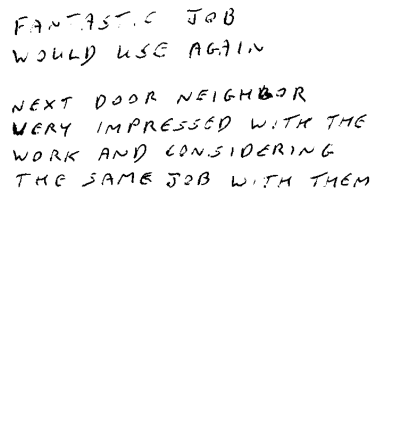 FANTASTIC JOB
WOULD USE AGAIN
NEXT DOOR NEIGHBOR
VERY IMPRESSED WITH THE
WORK AND CONSIDERING
THE SAME JOB WITH THEM